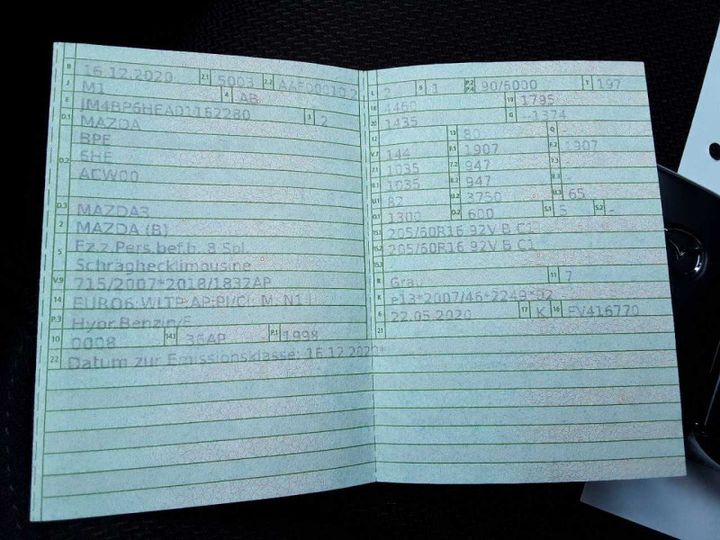 B 16.12.2020 2.1 5003 2.2
J M1 4 AB
E JM4BP6HEA01162280 3 2
D.1 MAZDA
BPE
D.2 5HE
ACW00
D.3 MAZDA3
2 MAZDA (B)
5 Fz.z.Pers.bef.b. 8 Spl.
Schräghecklimousine
V.9 715/2007*2018/1832AP
14 EURO6;WLTP;AP;PI/CI; M, N1 I
P.3 Hybr.Benzin/E
10 0008 14.1 36AP P.1 1998
22 Datum zur Emissionsklasse: 16.12.2020*
L 2 9 1 P.2 P.4 90/6000 T 197
18 4460 19 1795
20 1435 G 1374
12 - 13 80 Q -
V.7 144 F.1 1907 F.2 1907
7.1 1035 7.2 947 7.3 -
8.1 1035 8.2 947 8.3 -
U.1 82 U.2 3750 U.3 65
O.1 1300 O.2 600 S.1 5 S.2 -
15.1 205/60R16 92V B C1
15.2 205/60R16 92V B C1
R Grau 11 7
K e13*2007/46*2249*02
6 22.05.2020 17 K 16 FV416770
21